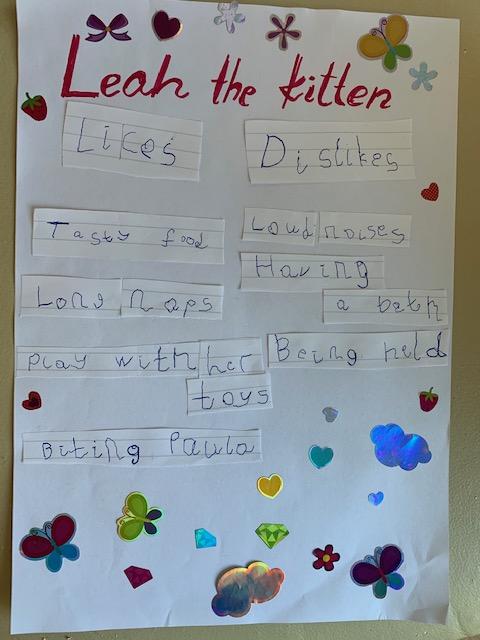 Leah the kitten
Likes
Dislikes
Tasty food
Long naps
Play with her
toys
Biting Paula
Loud noises
Having
a bath
Being held